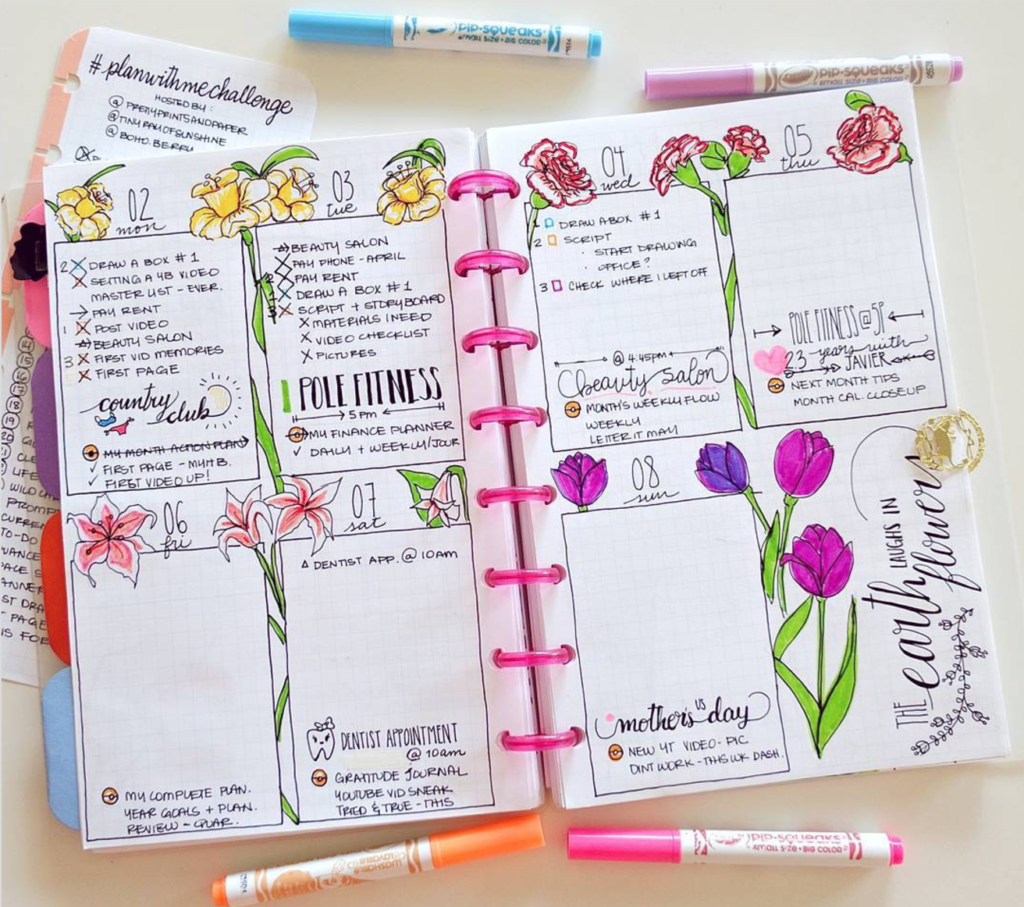 #planwithmechallenge
HOSTED BY:
@PRETTYPRINTSANDPAPER
@TINYRAYOFSUNSHINE
@BOHO.BERRY
02
mon
2 DRAW A BOX #1
SETTING A 4B VIDEO
MASTER LIST - EVER.
→ PAY RENT
1 X POST VIDEO
BEAUTY SALON
3 X FIRST VID MEMORIES
X FIRST PAGE
country club
MY MONTH ACTION PLAN
✓ FIRST PAGE - MYHB.
✓ FIRST VIDEO UP!
03
tue
BEAUTY SALON
PAY PHONE - APRIL
PAY RENT
DRAW A BOX #1
X SCRIPT + STORYBOARD
X MATERIALS I NEED
X VIDEO CHECKLIST
X PICTURES
POLE FITNESS
5pm
MY FINANCE PLANNER
✓ DAILY + WEEKLY/JOUR
04
wed
1 DRAW A BOX #1
2 SCRIPT
· START DRAWING
· OFFICE?
3 CHECK WHERE I LEFT OFF
@ 4:45pm
beauty salon
MONTH'S WEEKLY FLOW
WEEKLY
LETTER IT MAY
05
thu
POLE FITNESS @ 5P
23 years with
JAVIER
NEXT MONTH TIPS
MONTH CAL. CLOSEUP
06
fri
MY COMPLETE PLAN.
YEAR GOALS + PLAN.
REVIEW - QUAR.
07
sat
Δ DENTIST APP. @ 10AM
DENTIST APPOINTMENT
@ 10am
GRATITUDE JOURNAL
YOUTUBE VID SNEAK
TRIED & TRUE - THIS
08
sun
US
mother's day
NEW YT VIDEO - PIC
DINT WORK - THIS WK DASH.
THE earth LAUGHS IN flowers
pip-squeaks
small size · big color
pip-squeaks
small size · big color
pip-squeaks
small size · big color
WASHABLE